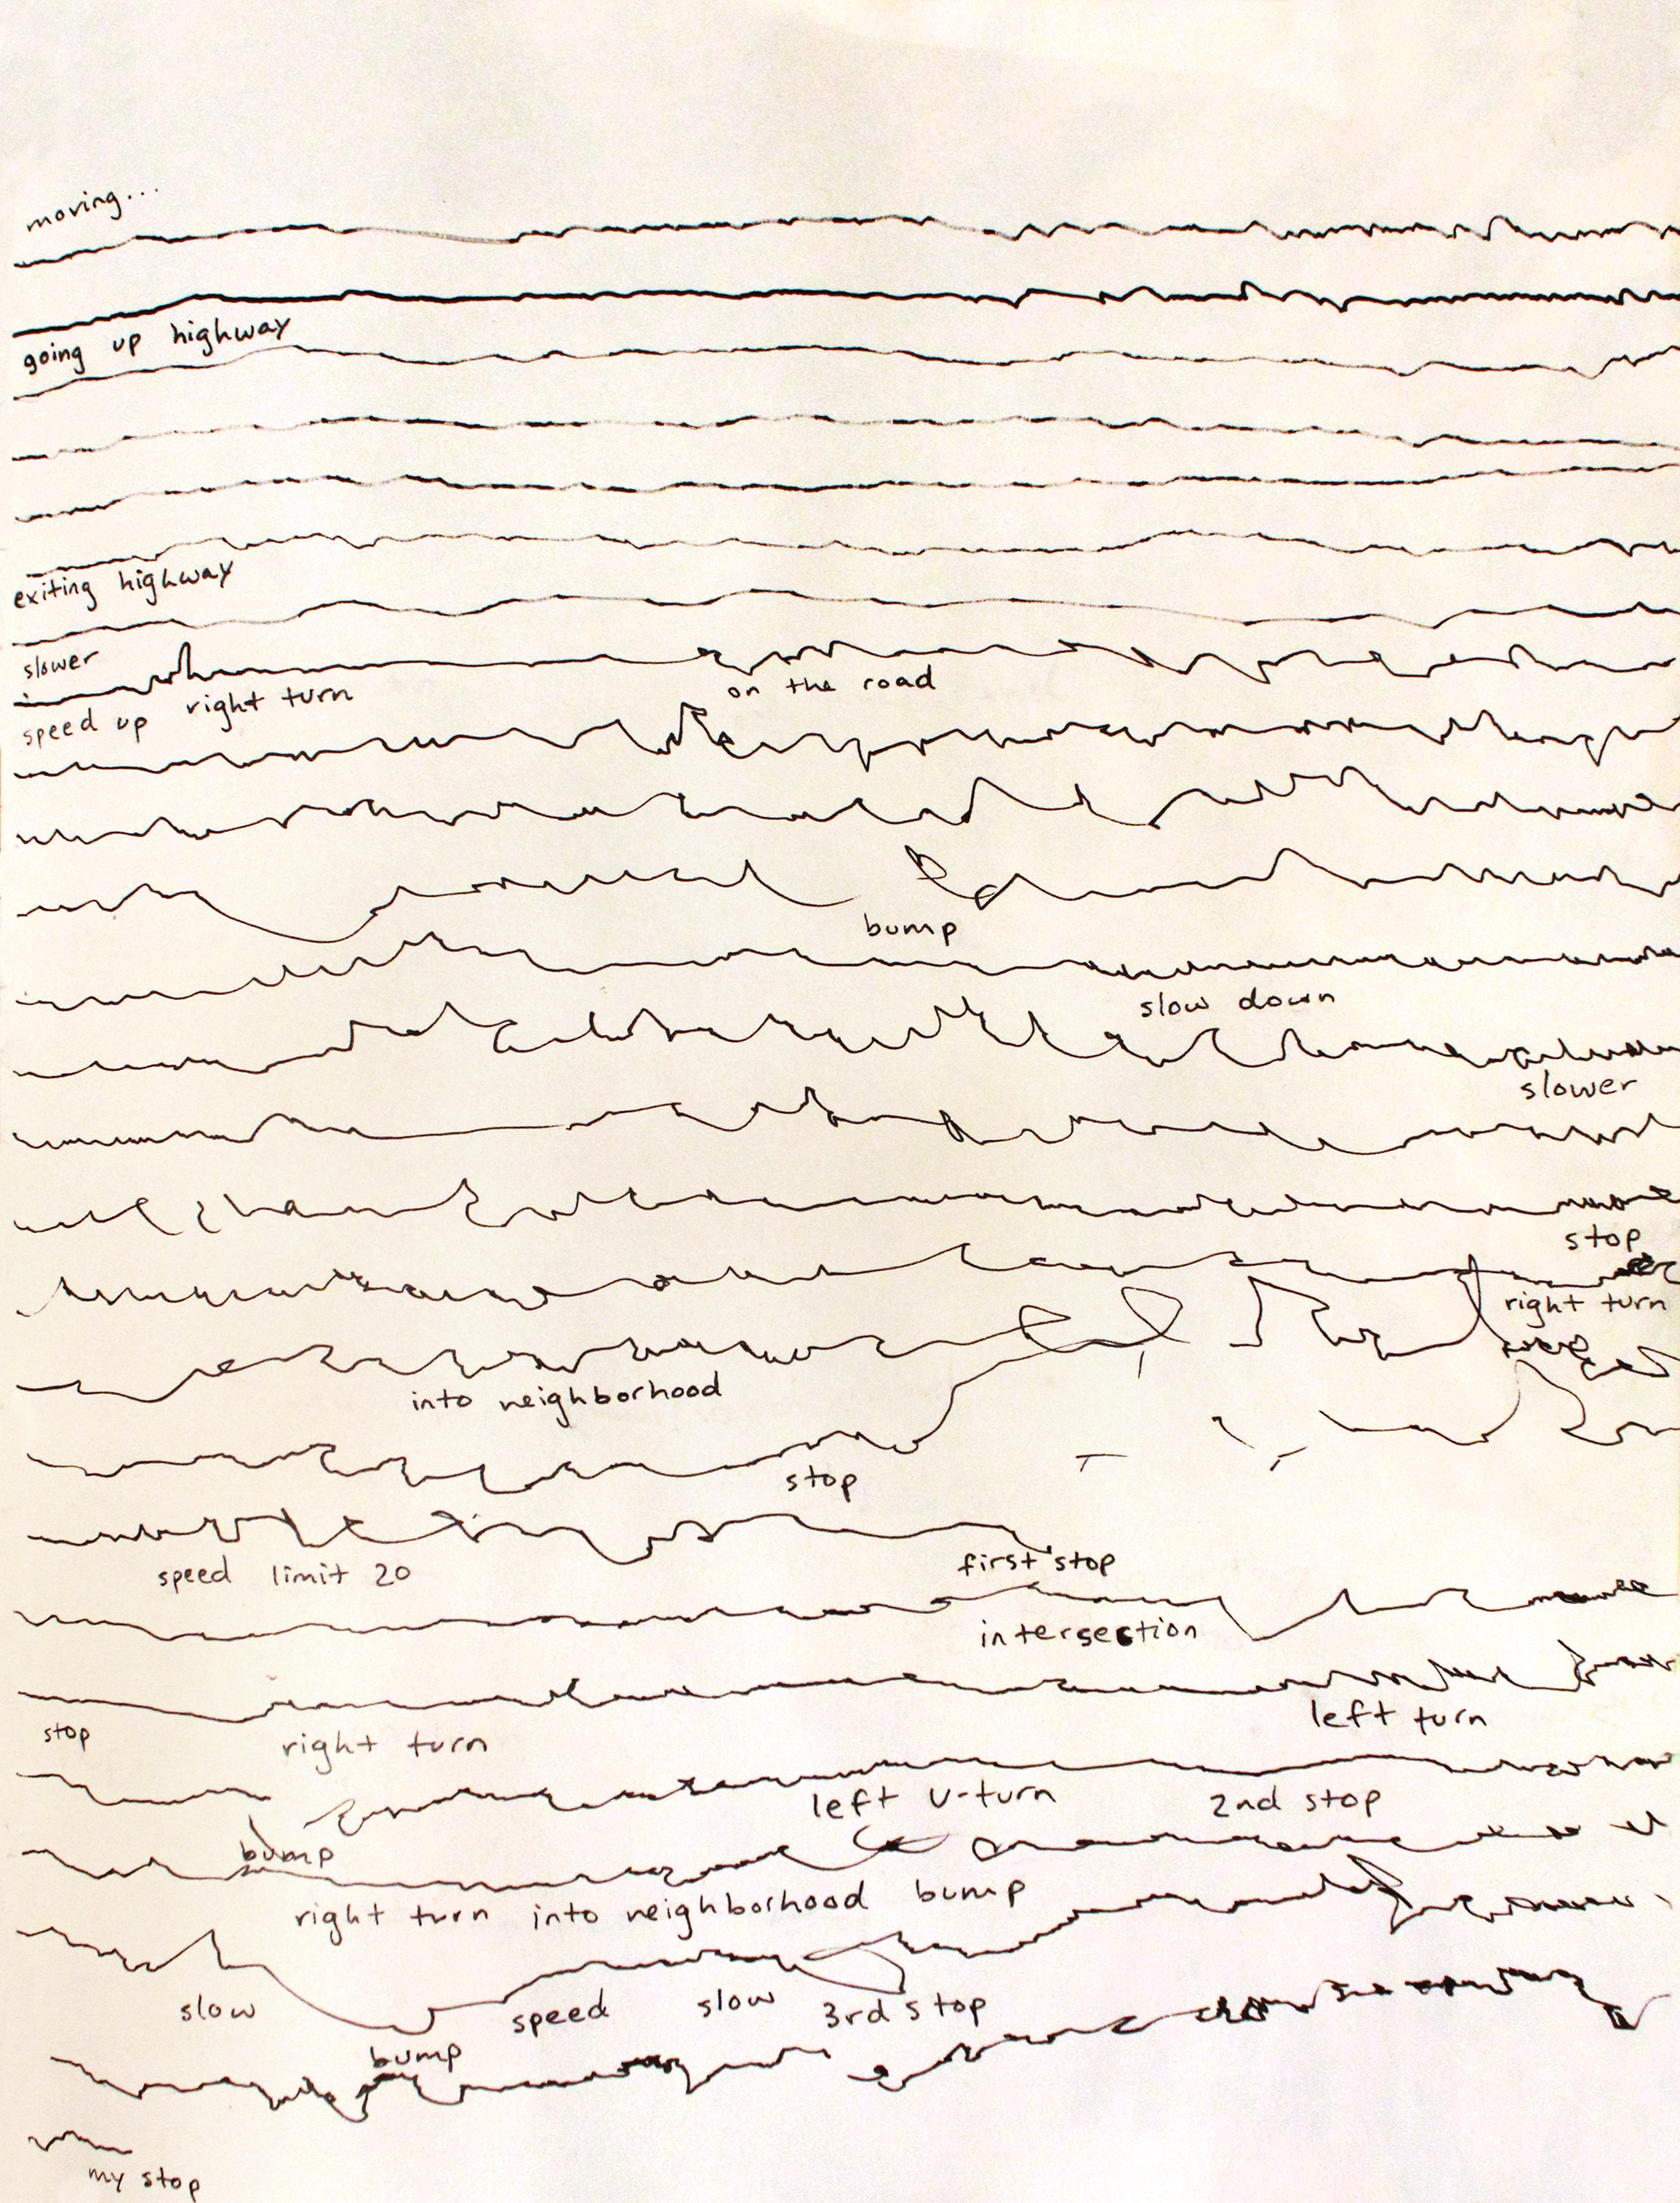 moving...
going up highway
exiting highway
slower
speed up right turn
on the road
bump
slow down
slower
stop
right turn
into neighborhood
stop
speed limit 20
first stop
intersection
left turn
stop
right turn
left U-turn 2nd stop
bump
right turn into neighborhood bump
slow speed slow 3rd stop
bump
my stop